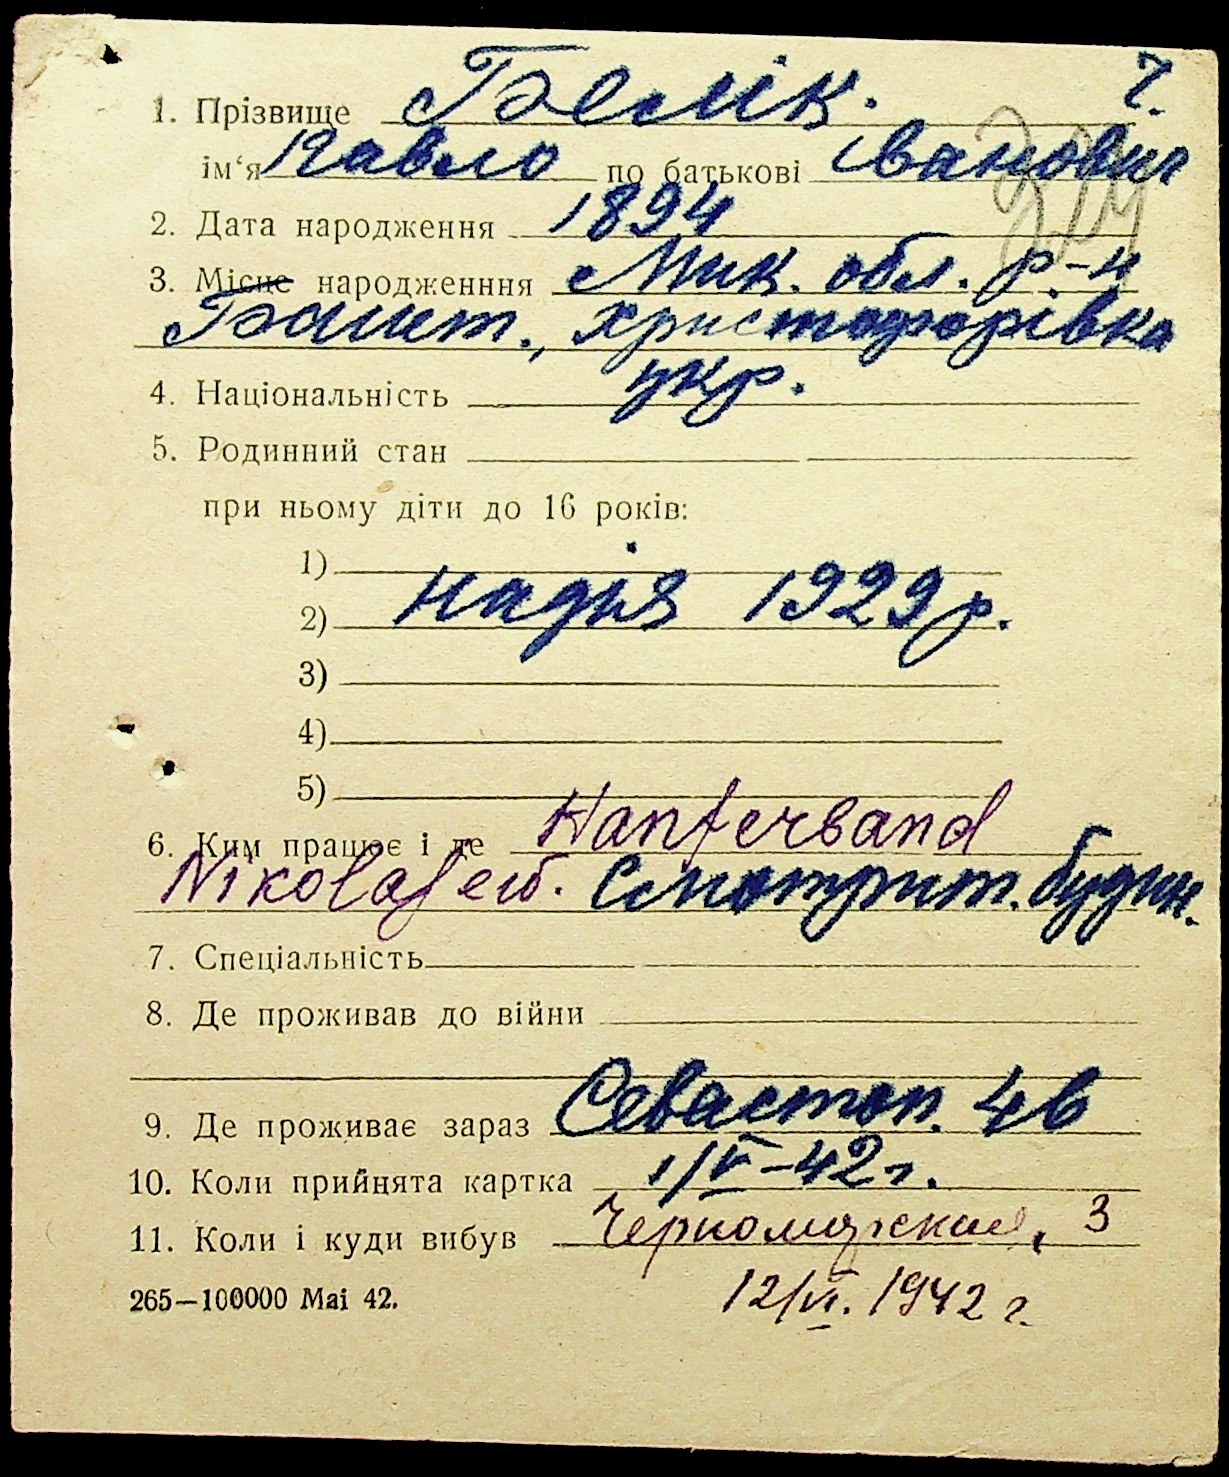 1. Прізвище Бэлік. ч.
ім‘я Павло по батькові Іванович
2. Дата народження 1894
3. Місце народженння Мик. обл. р-н
Башт., Христофорівка
4. Національність укр.
5. Родинний стан
при ньому діти до 16 років:
1)
2) Надія 1929 р.
3)
4)
5)
6. Ким працює і де Hanferband
Nikolajew. Смотрит. будин.
7. Спеціальність
8. Де проживав до війни
9. Де проживає зараз Севастоп. 46
10. Коли прийнята картка 1/V-42 г.
11. Коли і куди вибув Черноморская, 3
265—100000 Mai 42. 12/VI. 1942 г.